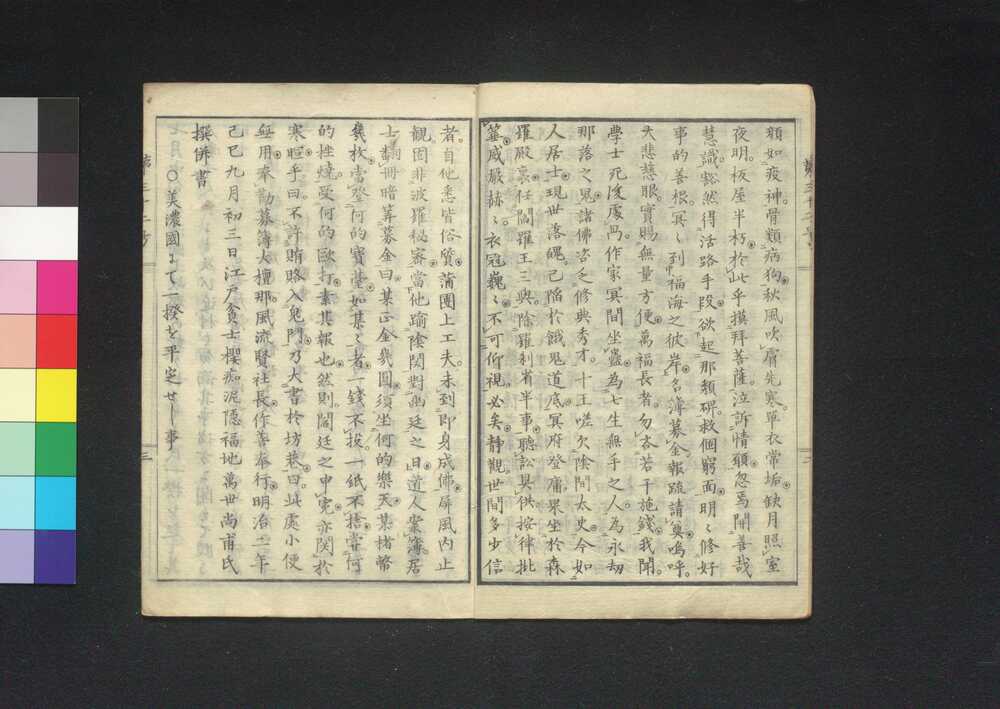 頬如疫神骨類病狗秋風吹膚先寒單衣常垢缺月照室
夜明板屋半朽於此乎摸拜菩薩泣訴情願忽焉開善哉
慧識豁然得活路手段欲起那類碑救個窮面明〻修好
事的善根冥〻到福海之彼岸名簿募金報疏請奠嗚呼
大悲慈眼實賜無量方便萬福長者勿吝若干施錢我聞
學士死後處爲作家冥間坐蠱為七生無手之人為永劫
那落之鬼諸佛咨乏修典秀才十王嗟欠陰間太史今如
人居士現世落魄已陷於餓鬼道底冥府登庸果坐於森
羅殿裏任閻羅王三與除羅刹省半事聽訟與供按律批
筆威嚴赫〻衣冠巍〻不可仰視必矣靜觀世間多少信
者自他悉皆俗質蒲團上工夫未到即身成佛屏風内止
觀固非波羅秘審當他踰陰閔對幽廷之日道人案簿居
士冊暗筭募金曰某正金幾圓須坐何的樂天某楮幣
幾枚當登何的寶臺如某〻者一錢不拔一紙不捨當何
的挫燒受何的歐打素其報也然則閻廷之申寃亦関於
寒暄乎曰不許賄賂入鬼門乃大書於坊巷曰此處小便
無用奉勸募簿大檀那風流賢社長作善奉行明治二年
己巳九月初三日江戸貪士櫻痴泥隱福地萬世尚甫氏
撰併書
〇美濃國にて一揆を平定せし事
三